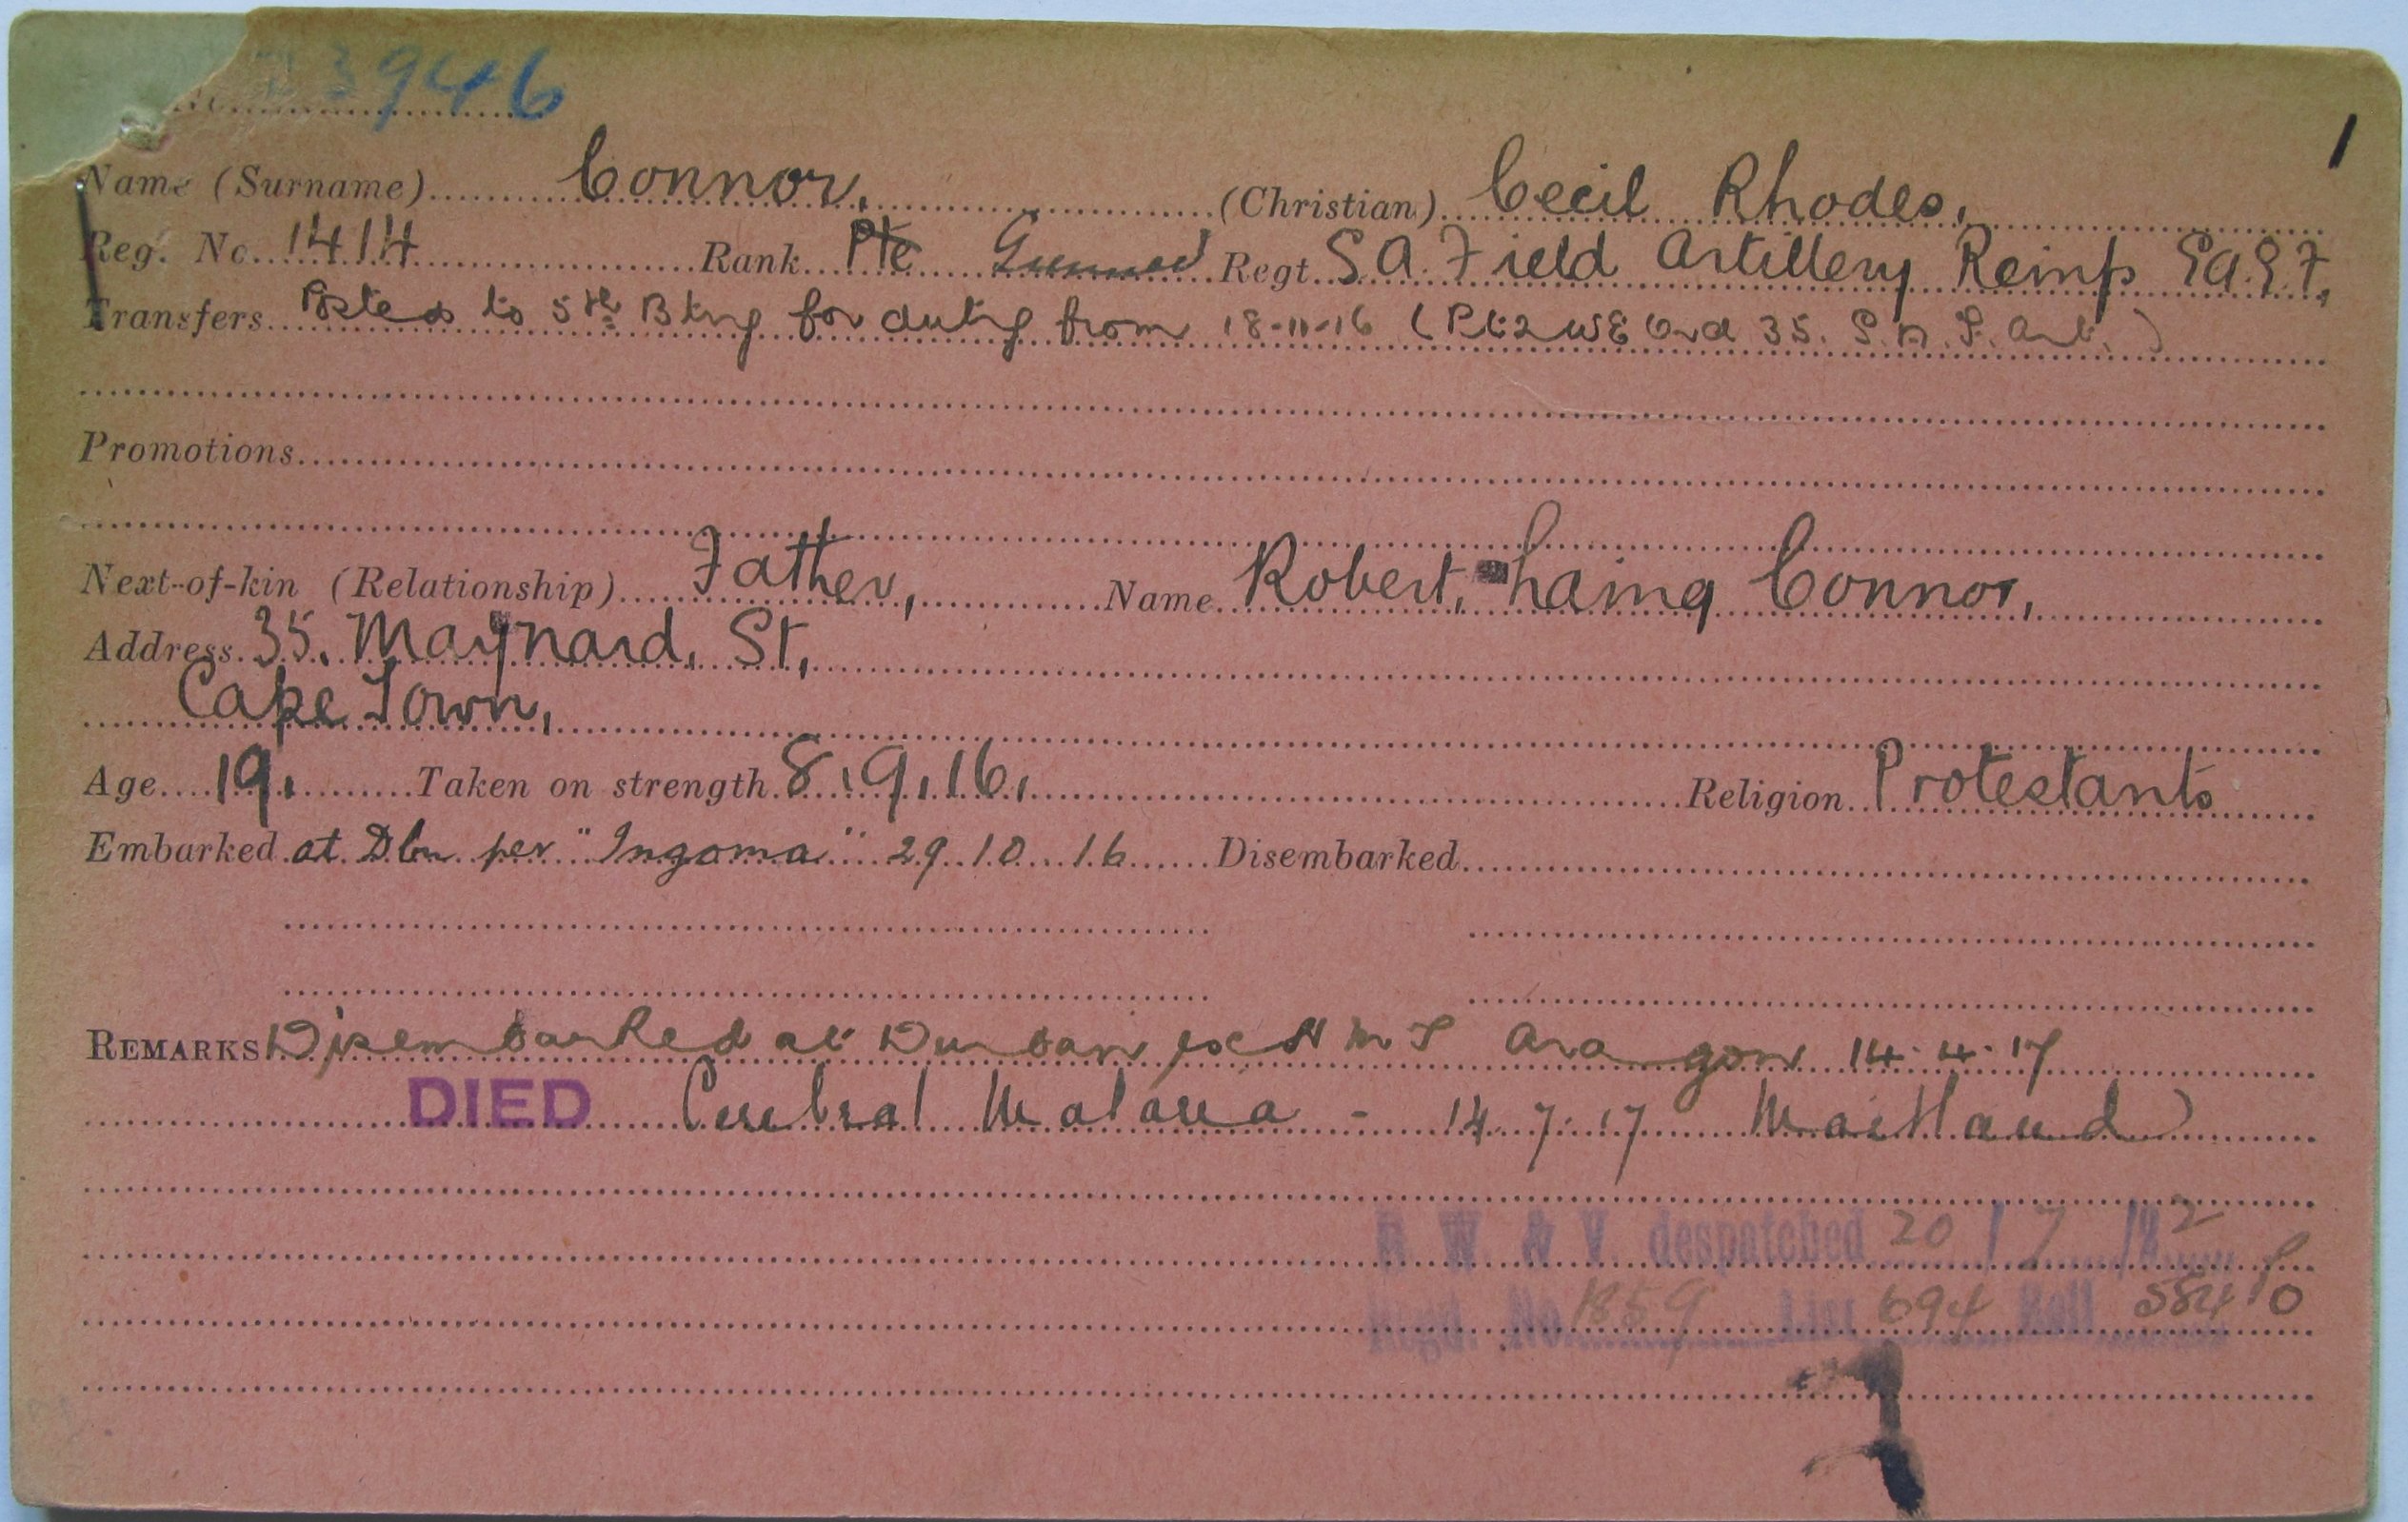 3946
1
Name (Surname) Connor, (Christian) Cecil Rhodes,
Reg. No. 1414 Rank Pte Gunner Regt. S.A. Field Artillery Reinfs E.A.E.F,
Transfers Posted to 5th Btry for duty from 18-11-16 (Pt 2 WE Ord 35. S.A.F. Art.)
Promotions
Next-of-kin (Relationship) Father, Name Robert, Laing Connor,
Address 35, Maynard, St,
Cape Town,
Age 19, Taken on strength 8,9,16, Religion Protestant
Embarked at Dbn per "Ingoma" 29.10.16 Disembarked
REMARKS Disembarked at Durban ex HMT Aragon 14.4.17
DIED Cerebral Malaria - 14.7.17 Maitland)
W. & V. despatched 20/7/22
Regd. No 1859 List 694 Roll 584